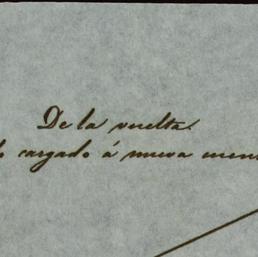 De la vuelta.
cargado á nueva